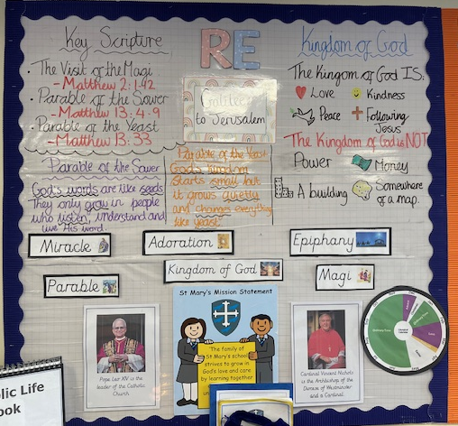 Key Scripture
• The Visit of the Magi
- Matthew 2:1-12
• Parable of the Sower
- Matthew 13:4-9
• Parable of the Yeast
- Matthew 13:33
Parable of the Sower
God's words are like seeds
They only grow in people
who listen, understand and
live His word.
RE
to Jerusalem
Parable of the Yeast
God's kingdom
starts small but
it grows quietly
and changes everything
like yeast.
Kingdom of God
The Kingdom of God IS:
Love
Kindness
Peace
Following
Jesus
The Kingdom of God is NOT
Power
Money
A building
Somewhere
on a map.
Miracle
Adoration
Epiphany
Parable
Kingdom of God
Magi
Pope Leo XIV is the
leader of the Catholic
Church.
St Mary's Mission Statement
The family of
St Mary's school
strives to grow in
God's love and care
by learning together
Cardinal Vincent Nichols
is the Archbishop of the
Diocese of Westminster
and a Cardinal.
olic Life
ook